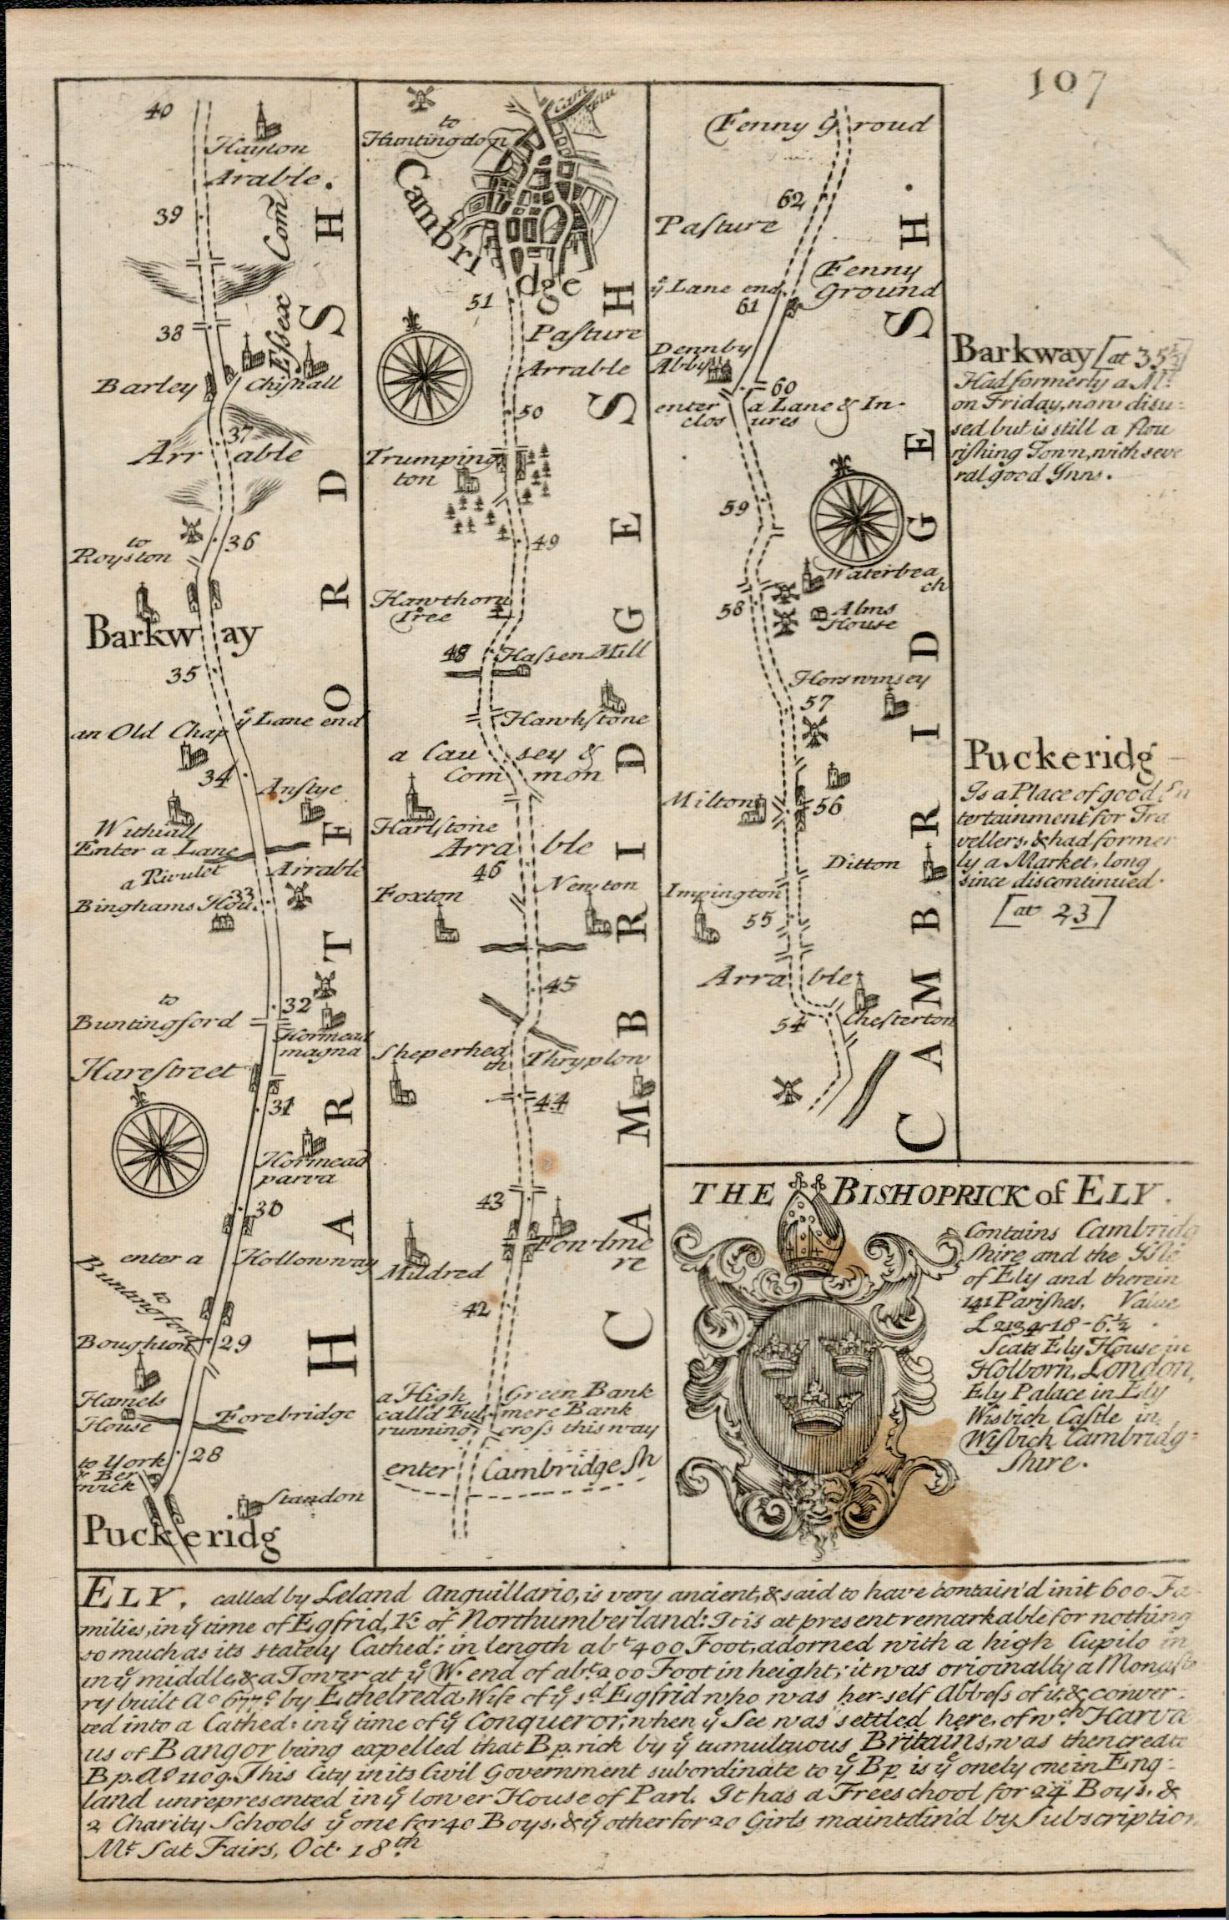 107
40
Hayton
Arable.
39
Essex Com̃
38
Barley
Chishall
37
Arr able
to
Royston
36
Barkway
35
an Old Chap
ÿ Lane end
34
Anstye
Withiall
Enter a Lane
a Rivulet
Arrable
33
Binghams Hou.
32
to
Buntingsford
Hormead
magna
Harestreet
31
Hormead
parva
30
enter a Hollow way
to
Buntingford
29
Boughton
Hamels
House
Forebridge
to York
& Ber
wick
28
Standon
Puckeridg
HARTFORDSH
to
Huntingdon
Cam flu
Cambridge
51
Pasture
Arrable
50
Trumping
ton
49
Hawthorn
Tree
48
Hassen Mill
Hawkstone
a Cau sey &
Com mon
Harlstone
Arra ble
46
Foxton
Newton
45
Sheperhed
th
Thryplow
44
43
Fowlme
re
Mildred
42
a High Green Bank
call'd Ful mere Bank
running cross this way
enter Cambridge Sh
CAMBRIDGESH
Fenny Groud
62
Pasture
Fenny
Ground
ÿ Lane end
61
Dennby
Abby
60
enter a Lane & In-
clos ures
59
Waterbea
ch
58
Alms
House
Horswinsey
57
Milton
56
Ditton
Impington
55
Arra ble
54
Chesterton
CAMBRIDGESH.
Barkway [at 35½]
Had formerly a Mt.
on Friday, now disu-
sed but is still a flou
rishing Town, with seve
ral good Ynns.
Puckeridg
Is a Place of good En
tertainment for Tra
vellers, & had former
ly a Market, long
since discontinued.
[at 23]
THE BISHOPRICK of ELY.
Contains Cambridg
shire and the Yſle
of Ely and therein
141 Parishes. Value
£ 2134-18-6½.
Seats Ely House in
Holborn, London,
Ely Palace in Ely
Wisbich Castle in
Wisbich Cambridg-
shire.
ELY, called by Leland Anguillario, is very ancient, & said to have contain'd in it 600 Fa
milies, in ÿ time of Egfrid, K. of Northumberland: It is at present remarkable for nothing
so much as its stately Cathed: in length abt 400 Foot, adorned with a high Cupilo in
in ÿ middle, & a Tower at ÿ W. end of abt 200 Foot in height; it was originally a Monaste
ry built Ao by Ethelreda, Wife of ÿ sd Egfrid who was her-self Abbess of it, & conver-
ted into a Cathed: in ÿ time of ÿ Conqueror, when ÿ See was settled here, of wch Harva
us of Bangor being expelled that Bp.rick by ÿ tumultuous Britains, was then create
Bp. Ao 1109. This City in its Civil Government subordinate to ÿ Bp. is ÿ onely one in Eng-
land unrepresented in ÿ lower House of Parl. It has a Free school for 24 Boys, &
2 Charity Schools ÿ one for 40 Boys, & ÿ other for 20 Girls maintain'd by Subscription
Mt Sat Fairs, Oct. 18th